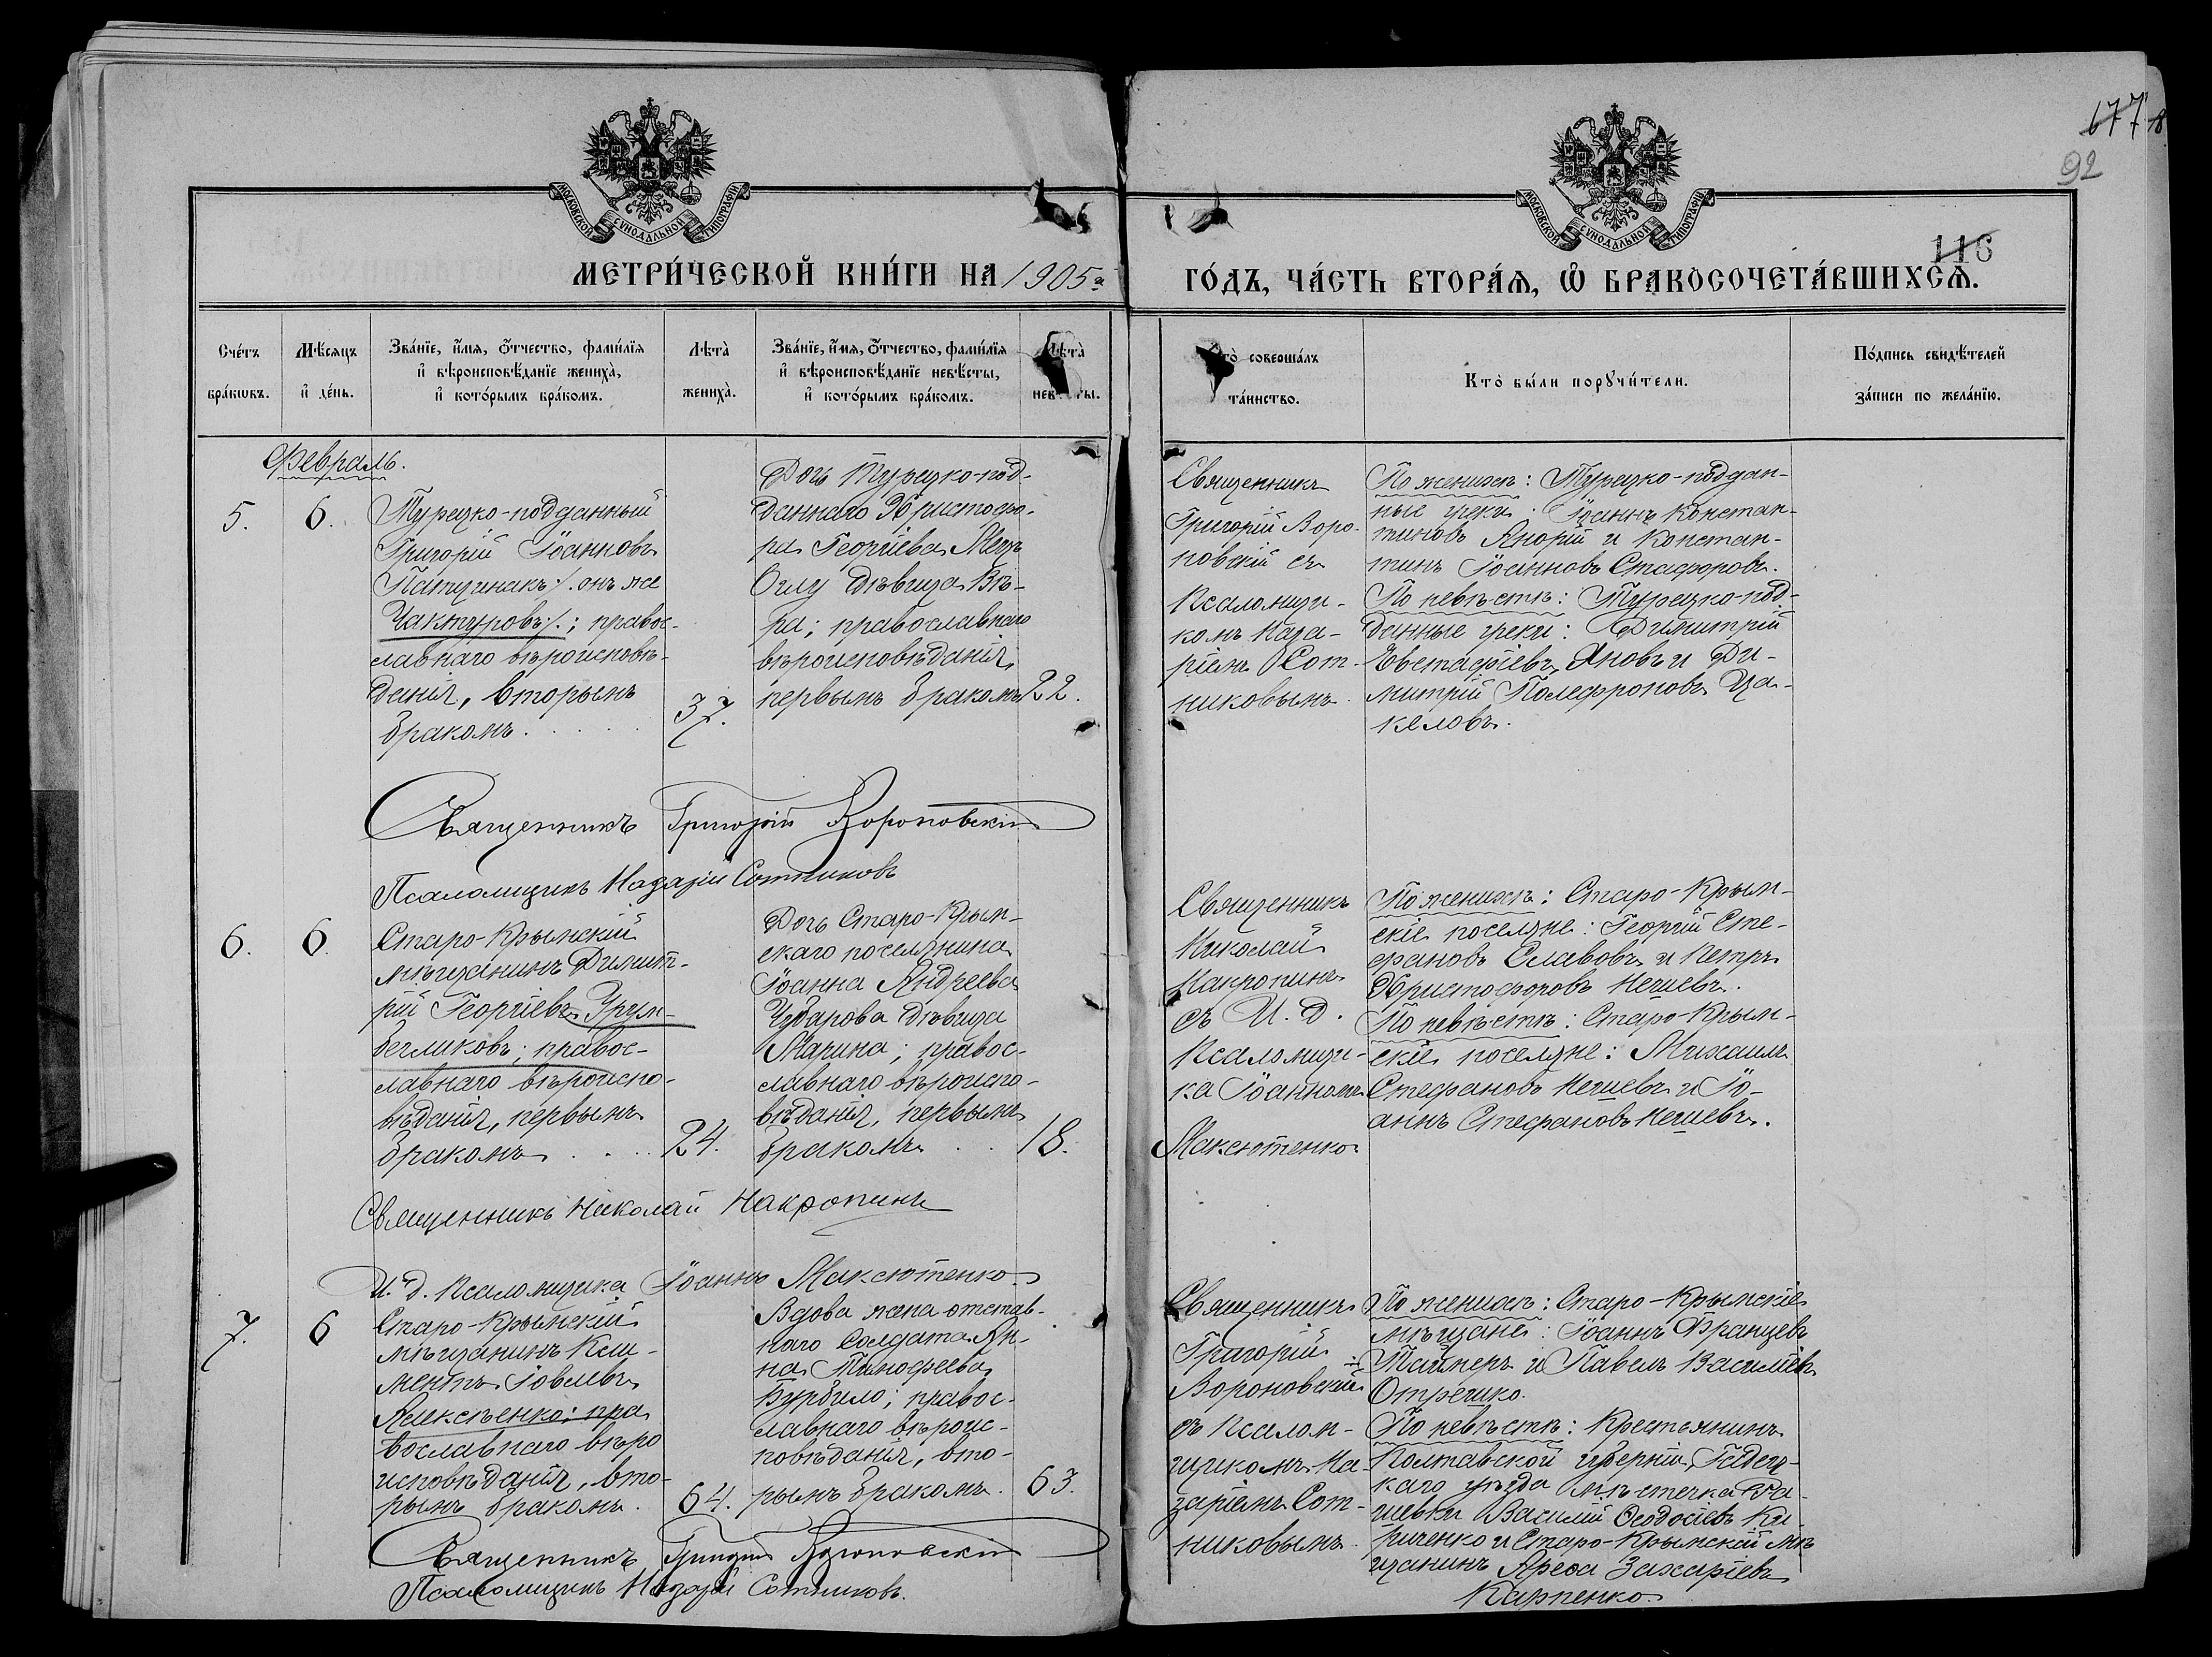 677
92
116
МОСКОВСКОЙ СѴНОДАЛЬНОЙ ТИПОГРАФІИ
МОСКОВСКОЙ СѴНОДАЛЬНОЙ ТИПОГРАФІИ
МЕТРИ́ЧЕСКОЙ КНИ́ГИ НА 1905й
ГО́ДЪ, ЧА́СТЬ ВТОРА́Ѧ, Ѽ БРАКОСОЧЕТА́ВШИХСѦ.
Сче́тъ
бра́кѡвъ.
Мѣ́сѧцъ
и҆ де́нь.
Зва́нїе, и҆́мѧ, ѻ҆́тчество, фами́лїѧ
и҆ вѣроисповѣ́данїе жениха̀,
и҆ кото́рымъ бра́комъ.
Лѣта̀
жениха̀.
Зва́нїе, и҆́мѧ, ѻ҆́тчество, фами́лїѧ
и҆ вѣроисповѣ́данїе невѣ́сты,
и҆ кото́рымъ бра́комъ.
Лѣта̀
невѣ́сты.
Кто̀ соверша́лъ
та́инство.
Кто̀ бы́ли порꙋчи́тели.
По́дпись свидѣ́телей
за́писи по жела́нїю.
Февраль.
5.
6.
Турецко-подданный
Григорій Іоанновъ
Патцинакъ /. онъ же
Чактуровъ/.; правос-
лавнаго вѣроисповѣ-
данія, вторымъ
бракомъ.
37.
Дочь Турецко-под-
даннаго Христофо-
ра Георгіева Мегъ
Оглу дѣвица Вѣ-
ра; православнаго
вѣроисповѣданія,
первымъ бракомъ
22.
Священникъ
Григорій Воро-
новскій съ
псаломщи-
комъ Наза-
ріемъ Сот-
никовымъ.
По женихѣ: Турецко-поддан-
ные греки: Іоаннъ Констан-
тиновъ Янорій и Констан-
тинъ Іоанновъ Стафоровъ.
По невѣстѣ: Турецко-под-
данные греки: Димитрій
Евстафіевъ Яновъ и Ди-
митрій Полефроновъ Ца-
келовъ.
Священникъ Григорій Вороновскій
Псаломщикъ Назарій Сотниковъ
6.
6.
Старо-Крымскій
мѣщанинъ Димит-
рій Георгіевъ Урум-
бегликовъ; правос-
лавнаго вѣроиспо-
вѣданія, первымъ
бракомъ
24.
Дочь Старо-Крым-
скаго поселянина
Іоанна Андреева
Чубарова дѣвица
Марина; правос-
лавнаго вѣроиспо-
вѣданія, первымъ
бракомъ
18.
Священникъ
Николай
Накропинъ
съ И. Д.
псаломщи-
ка Іоанномъ
Максютенко.
По женихѣ: Старо-Крым-
скіе поселяне: Георгій Сте-
фановъ Славовъ и Петръ
Христофоровъ Нешевъ.
По невѣстѣ: Старо-Крым-
скіе поселяне: Михаилъ
Стефановъ Нешевъ и Іо-
аннъ Стефановъ Нешевъ.
Священникъ Николай Накропинъ
И. д. псаломщика Іоаннъ Максютенко.
7.
6
Старо-Крымскій
мѣщанинъ Кли-
ментъ Іовлевъ
Алексѣенко; пра
вославнаго вѣро
исповѣданія, вто-
рымъ бракомъ.
64.
Вдова жена отстав-
наго солдата Ан-
на Тимофеева
Бурбило; правос-
лавнаго вѣроис-
повѣданія, вто-
рымъ бракомъ.
63.
Священникъ
Григорій
Вороновскій
съ псалом-
щикомъ На-
заріемъ Сот-
никовымъ.
По женихѣ: Старо-Крымскіе
мѣщане: Іоаннъ Францевъ
Тайнеръ и Павелъ Василіевъ
Отрешко.
По невѣстѣ: Крестьянинъ
Полтавской губерніи, Гадяч-
каго уѣзда мѣстечка Ра-
шевки Василій Ѳеодосіевъ Ки-
риченко и Старо-Крымскій мѣ
щанинъ Арефа Захаріевъ
Карпенко.
Священникъ Григорій Вороновскій
Псаломщикъ Назарій Сотниковъ.